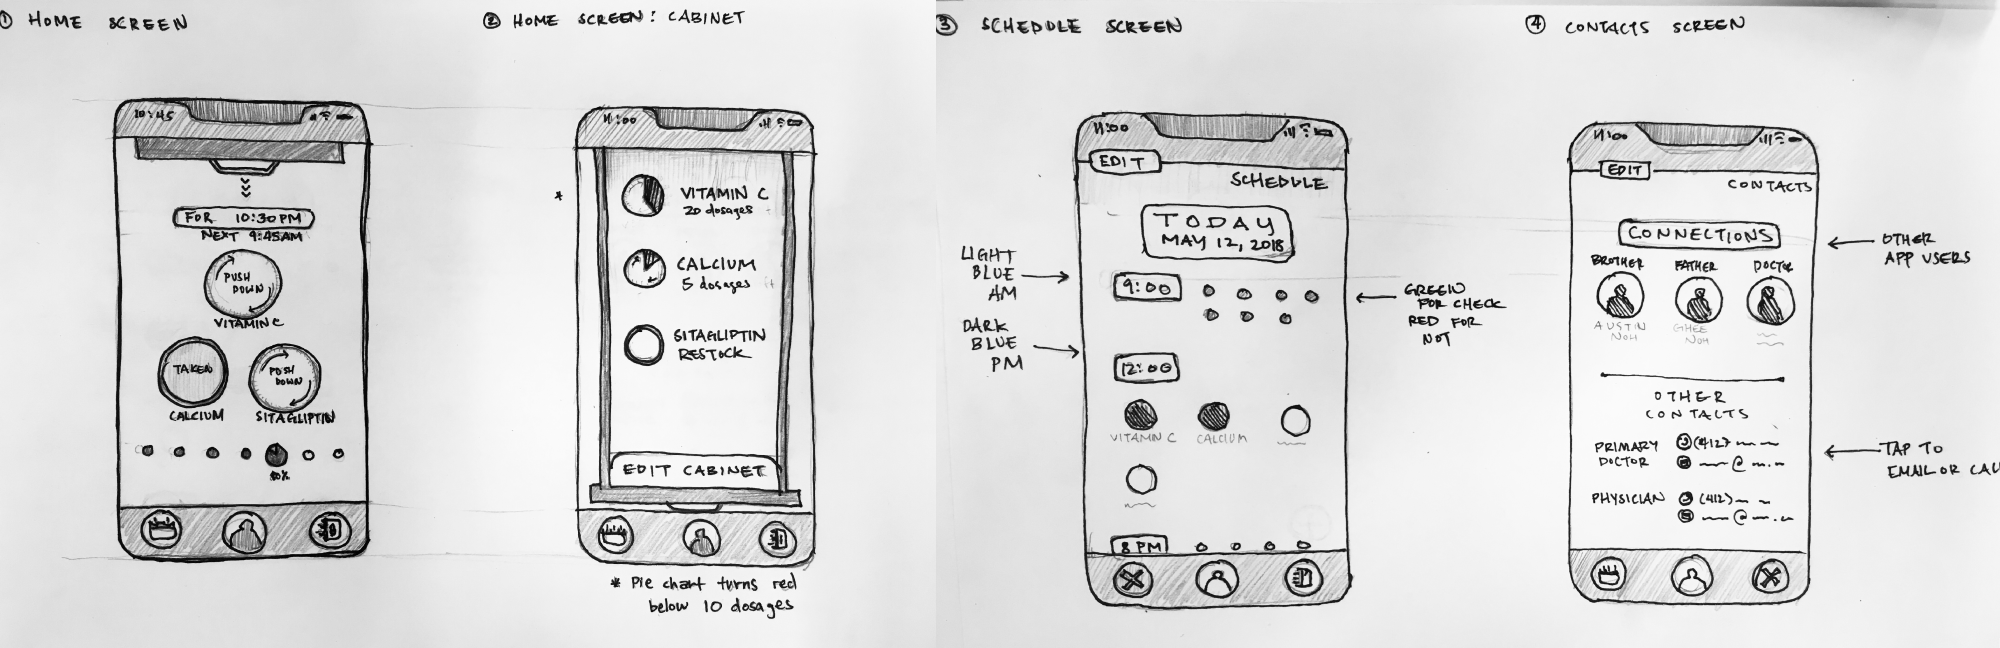 ① HOME SCREEN
10:45
FOR 10:30 PM
NEXT 9:45AM
PUSH
DOWN
VITAMIN C
TAKEN
CALCIUM
PUSH
DOWN
SITAGLIPTIN
80%
② HOME SCREEN: CABINET
11:00
*
VITAMIN C
20 dosages
CALCIUM
5 dosages
SITAGLIPTIN
RESTOCK
EDIT CABINET
* Pie chart turns red
below 10 dosages
③ SCHEDULE SCREEN
11:00
EDIT
SCHEDULE
TODAY
MAY 12, 2018
LIGHT
BLUE
AM
9:00
GREEN
FOR CHECK
RED FOR
NOT
DARK
BLUE
PM
12:00
VITAMIN C
CALCIUM
8 PM
④ CONTACTS SCREEN
11:00
EDIT
CONTACTS
CONNECTIONS
OTHER
APP USERS
BROTHER FATHER DOCTOR
AUSTIN
NOH
GHEE
NOH
OTHER
CONTACTS
PRIMARY
DOCTOR
(412)
@
TAP TO
EMAIL OR CAL
PHYSICIAN
(412)
@